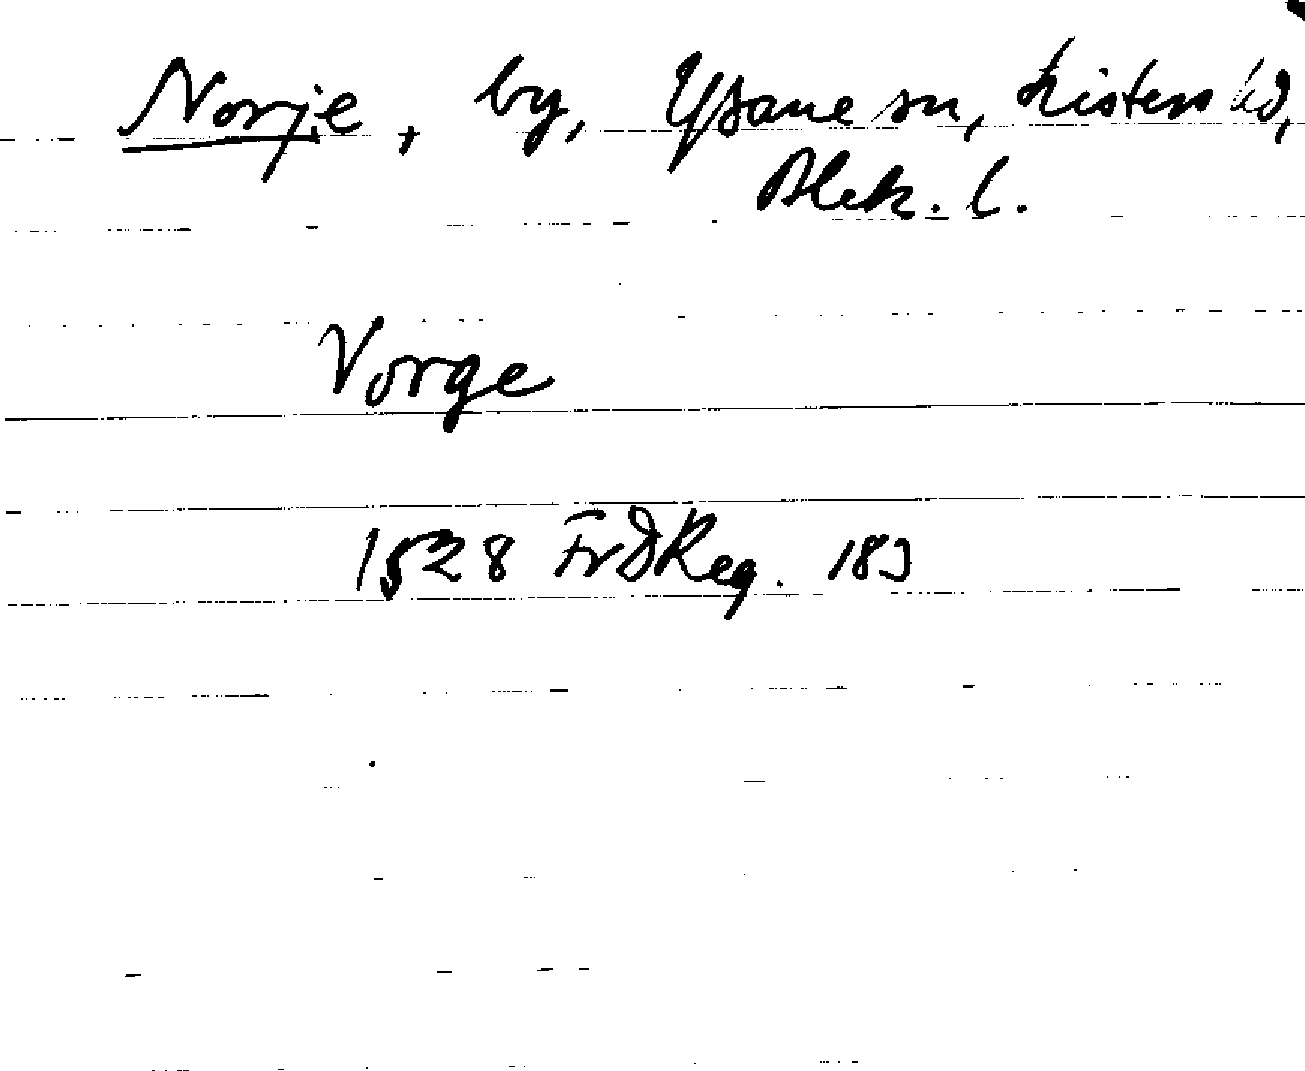 Norje, by, Ysane sn, Listers hd,
Blek. l.
Vorge
1528 FrDReg. 183